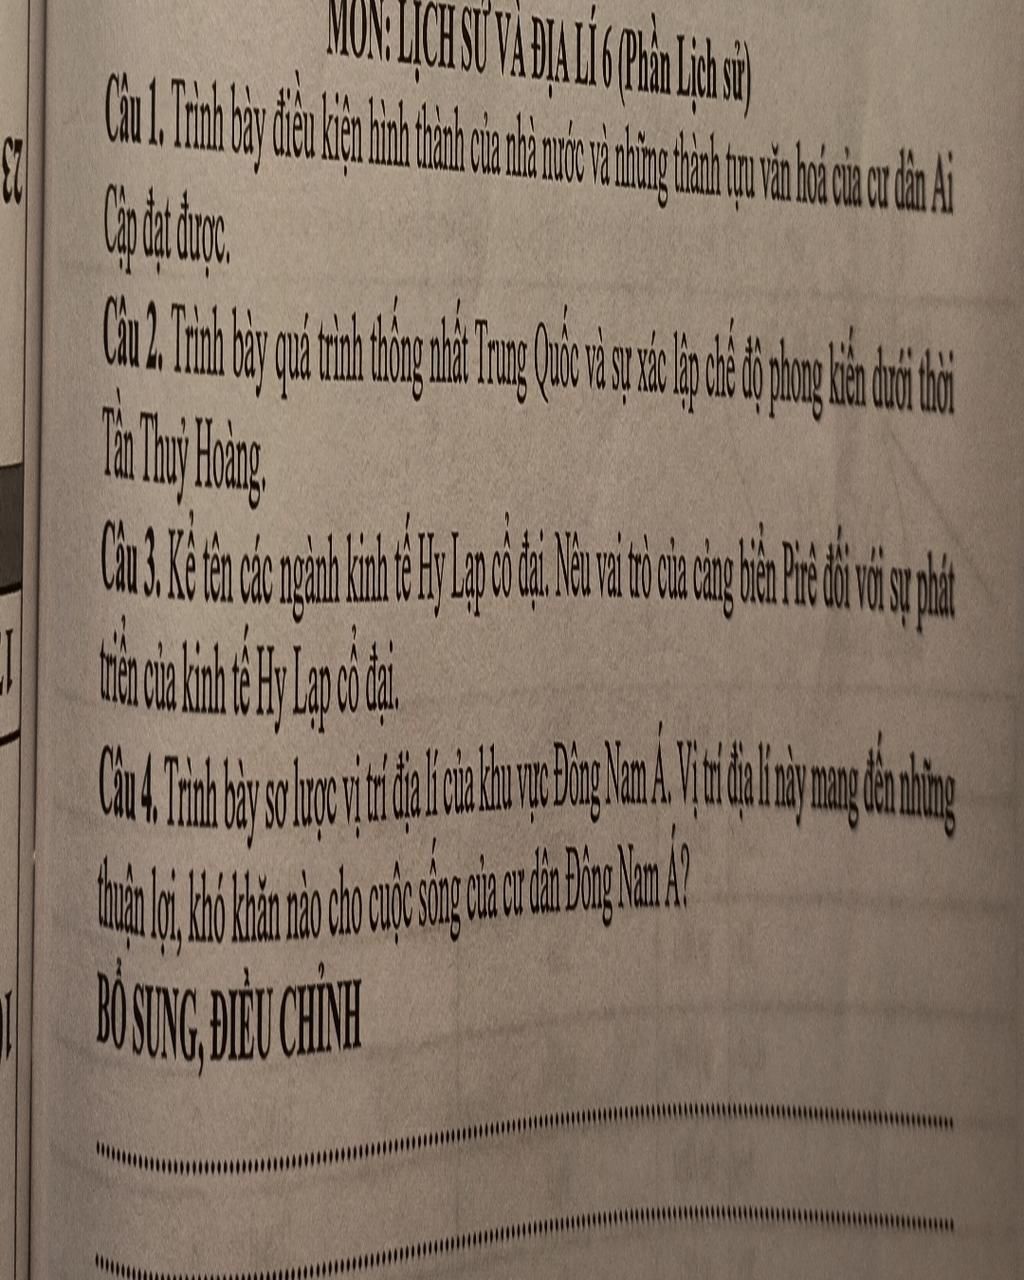 MÔN: LỊCH SỬ VÀ ĐỊA LÍ 6 (Phần Lịch sử)
Câu 1. Trình bày điều kiện hình thành của nhà nước và những thành tựu văn hoá của cư dân Ai
Cập đạt được.
Câu 2. Trình bày quá trình thống nhất Trung Quốc và sự xác lập chế độ phong kiến dưới thời
Tần Thuỷ Hoàng.
Câu 3. Kể tên các ngành kinh tế Hy Lạp cổ đại. Nêu vai trò của cảng biển Pirê đối với sự phát
triển của kinh tế Hy Lạp cổ đại.
Câu 4. Trình bày sơ lược vị trí địa lí của khu vực Đông Nam Á. Vị trí địa lí này mang đến những
thuận lợi, khó khăn nào cho cuộc sống của cư dân Đông Nam Á?
BỔ SUNG, ĐIỀU CHỈNH